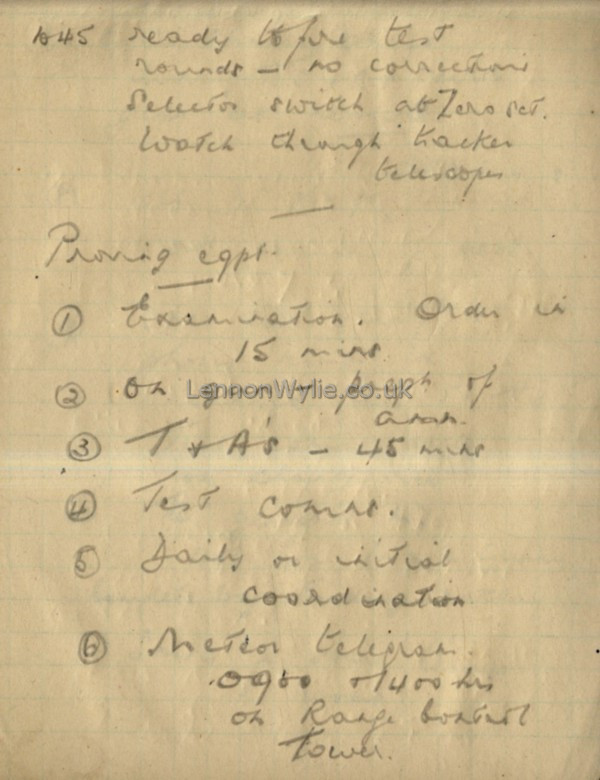 1045 ready to fire test
rounds – no corrections
Selector switch at Zero set.
Watch through tracker
telescopes
Proving eqpt.
① Examination. Order in
15 mins
② On gun – proph of
amn.
③ T & A's – 45 mins
④ Test comns.
⑤ Daily or initial
coordination
⑥ Meteor telegram.
0900 & 1400 hrs
on Range Control
Tower.
LennonWylie.co.uk